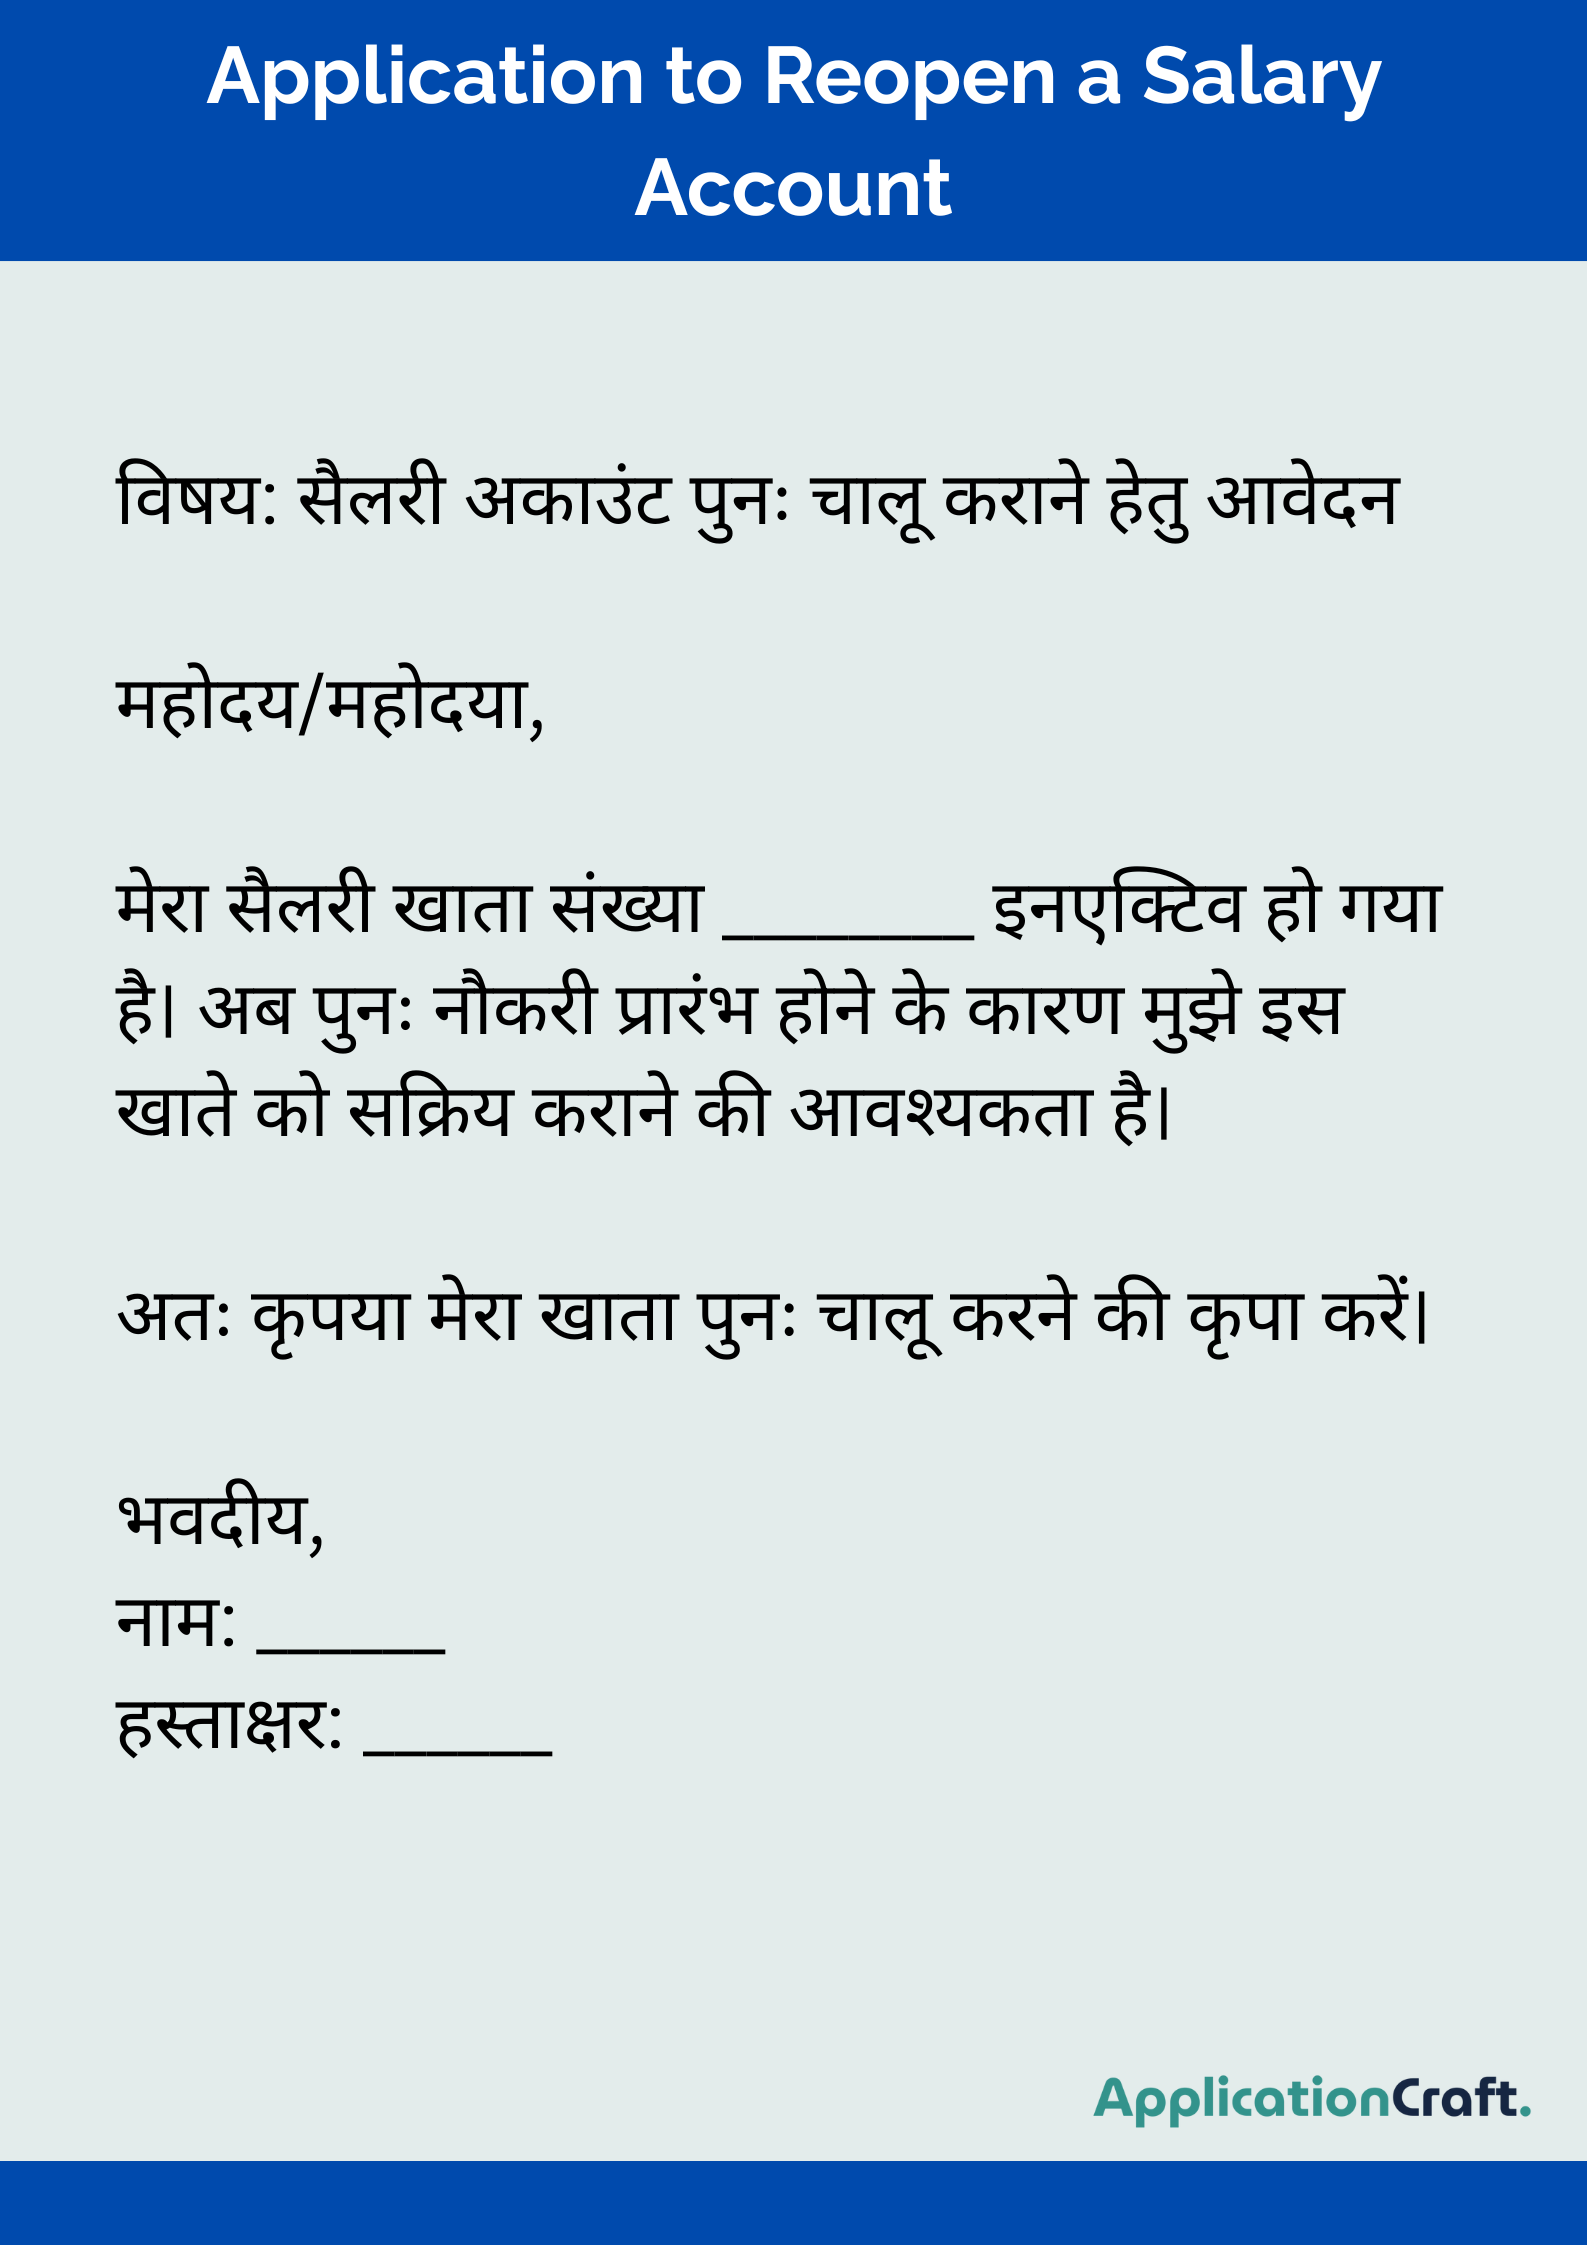 Application to Reopen a Salary
Account
विषय: सैलरी अकाउंट पुनः चालू कराने हेतु आवेदन
महोदय/महोदया,
मेरा सैलरी खाता संख्या ________ इनएक्टिव हो गया
है। अब पुनः नौकरी प्रारंभ होने के कारण मुझे इस
खाते को सक्रिय कराने की आवश्यकता है।
अतः कृपया मेरा खाता पुनः चालू करने की कृपा करें।
भवदीय,
नाम: ______
हस्ताक्षर: ______
ApplicationCraft.